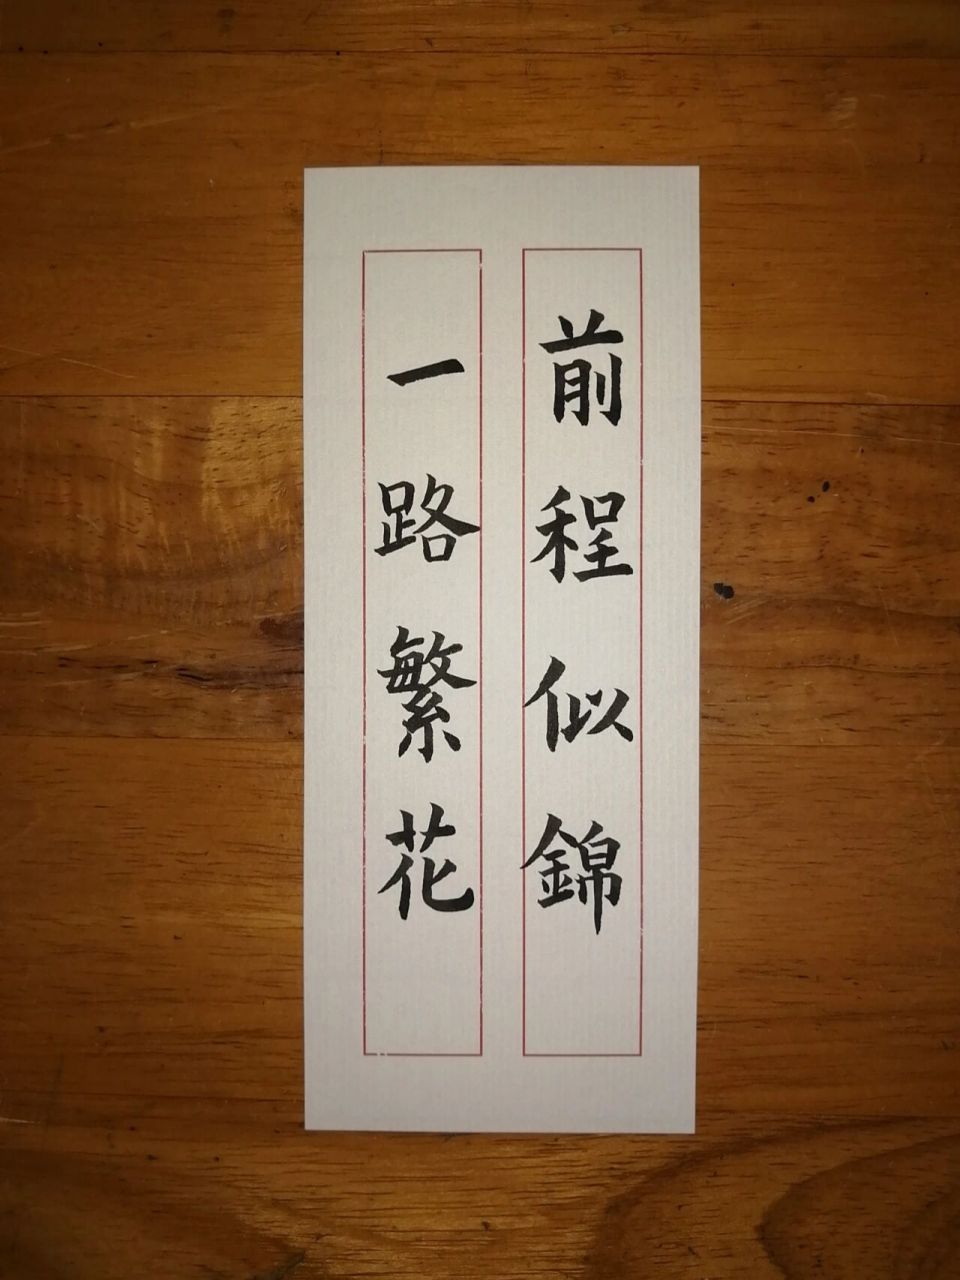 前程似錦
一路繁花